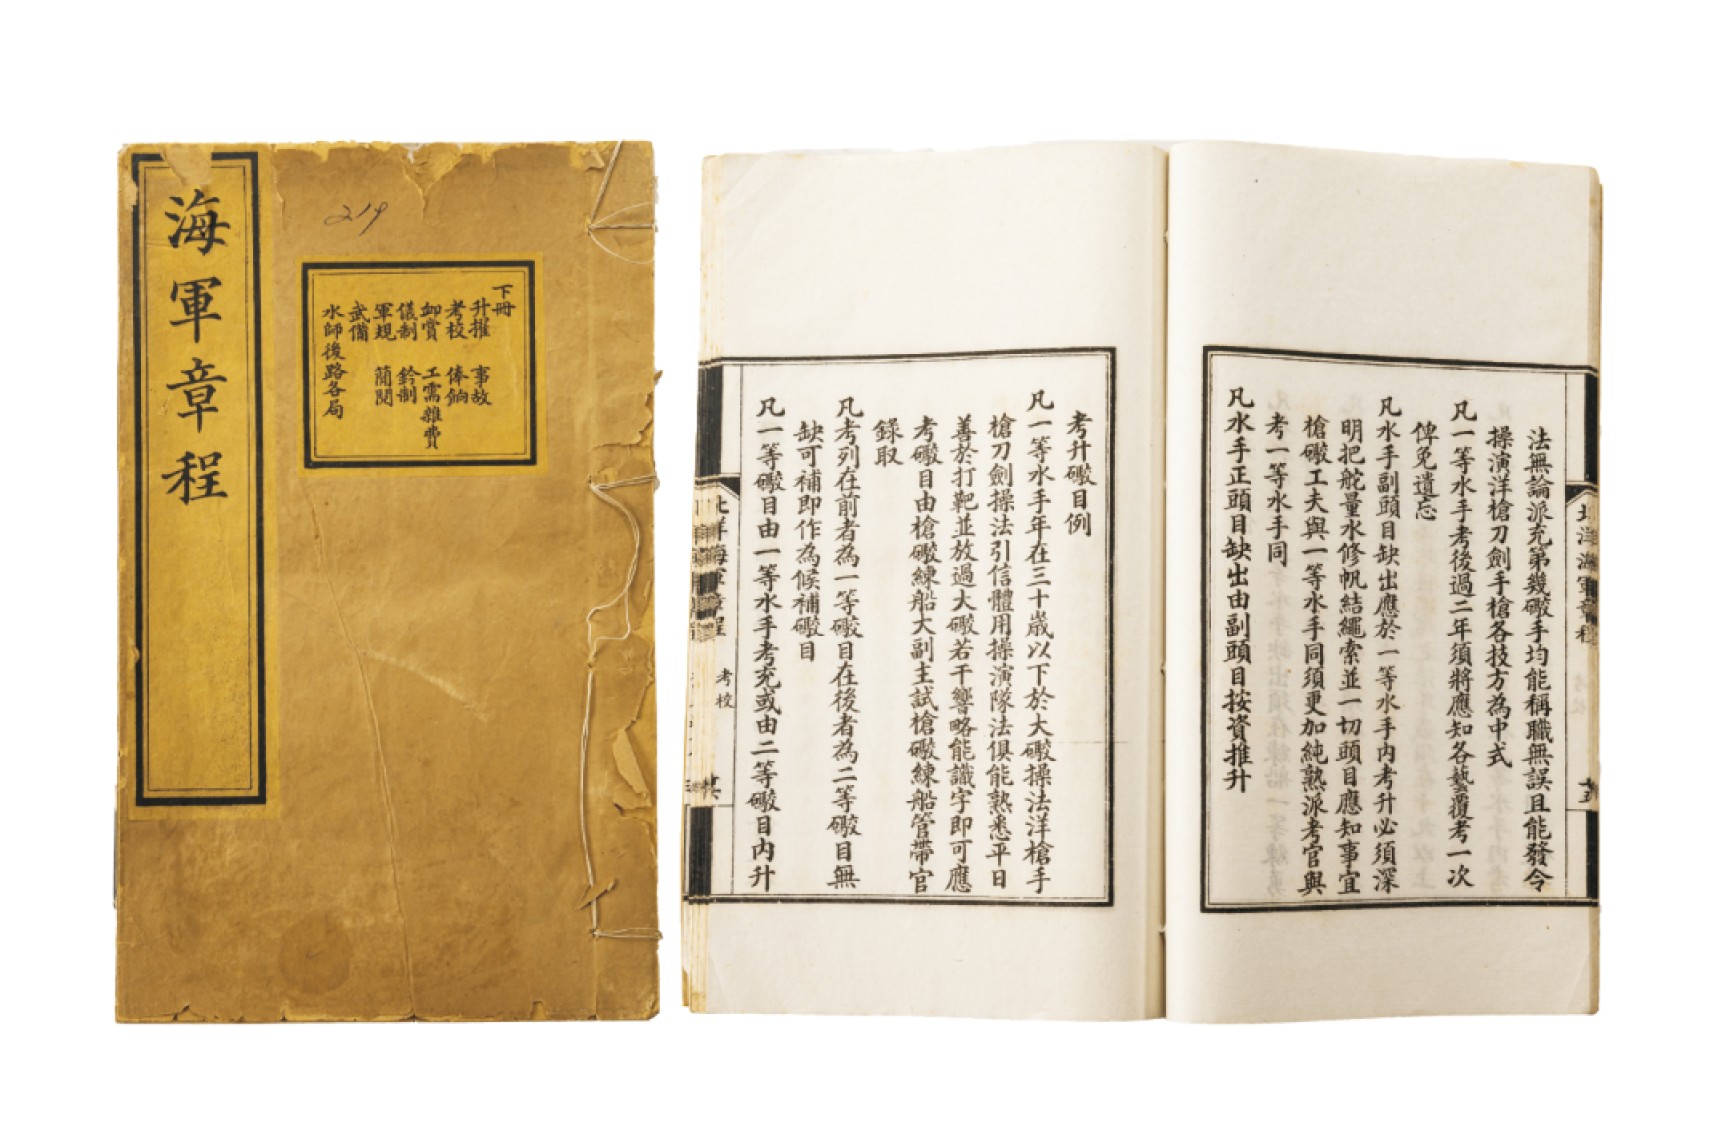 海軍章程
219
下冊
升擢 事故
考校 俸餉
卹賞 工需雜費
儀制 鈐制
軍規 簡閱
武備
水師後路各局
法無論派充第幾礮手均能稱職無誤且能發令
操演洋槍刀劍手槍各技方為中式
凡一等水手考後過二年須將應知各藝覆考一次
俾免遺忘
凡水手副頭目缺出應於一等水手內考升必須深
明把舵量水修帆結繩索並一切頭目應知事宜
槍礮工夫與一等水手同須更加純熟派考官與
考一等水手同
凡水手正頭目缺出由副頭目按資推升
考升礮目例
凡一等水手年在三十歲以下於大礮操法洋槍手
槍刀劍操法引信體用操演隊法俱能熟悉平日
善於打靶並放過大礮若干響略能識字即可應
考礮目由槍礮練船大副主試槍礮練船管帶官
錄取
凡考列在前者為一等礮目在後者為二等礮目無
缺可補即作為候補礮目
凡一等礮目由一等水手考充或由二等礮目內升
北洋海軍章程
考校